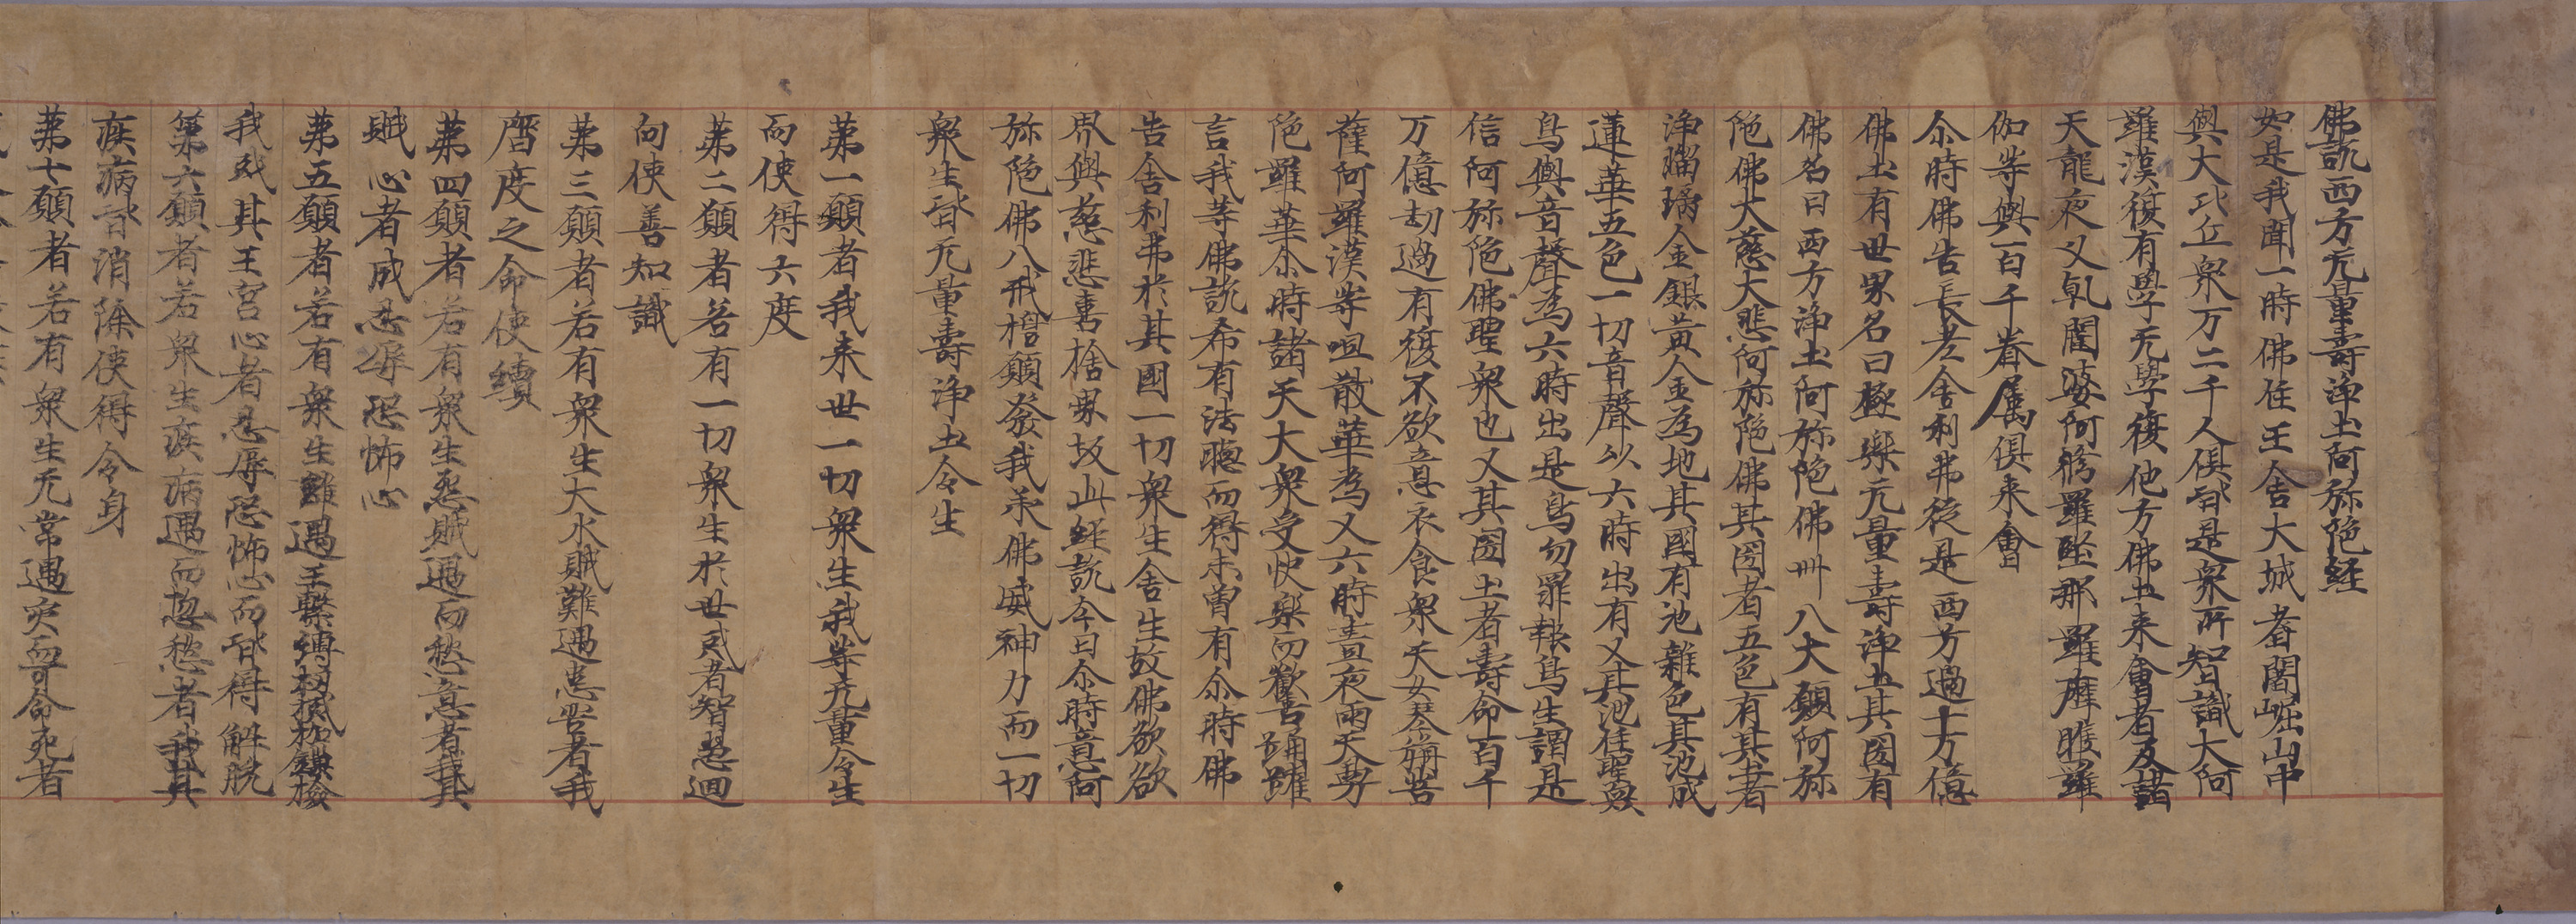 佛説西方无量壽淨土阿弥陁経
如是我聞一時佛住王舎大城耆闍崛山中
與大比丘衆万二千人俱皆是衆所智識大阿
羅漢復有學无學復他方佛土来會者及諸
天龍夜叉乹闥婆阿脩羅緊那羅摩睺羅
伽等與百千眷属俱来會
尒時佛告長老舎利弗従是西方過十万億
佛土有世界名曰極樂无量壽淨土其國有
佛名曰西方淨土阿弥陁佛卌八大願阿弥
陁佛大慈大悲阿弥陁佛其國者五色有其者
淨瑠璃金銀黄金為地其國有池雜色其池成
蓮華五色一切音聲以六時出有又其池住聖
鳥興音聲為六時出是鳥勿罪報鳥生謂是
信阿弥陁佛聖衆也又其國土者壽命百千
万億劫過有復不欲意衣食衆天女琴菩
薩阿羅漢等咀散華為又六時晝夜雨天男
陁羅華尒時諸天大衆受快樂而歡喜踊躍
言我等佛説希有法聴而得未曽有尒時佛
告舎利弗於其國一切衆生舎生故佛欲欲
界與慈悲喜捨界故此経説今日尒時意阿
弥陁佛八戒榗願發我承佛威神力而一切
衆生皆无量壽淨土令生
苐一願者我来世一切衆生我等无量令生
而使得六度
苐二願者若有一切衆生於世或者智慧迴
向使善知識
苐三願者若有衆生大水賊難遇悪苦者我
暦度之命使續
苐四願者若有衆生怨賊遇而愁意者我其
賊心者成忍辱恐怖心
苐五願者若有衆生難遇王繋縛杻械枷鏁檢
我或其王宮心者忍辱恐怖心而皆得解脱
第六願者若衆生疾病遇而愁者我其
疾病皆消除使得令身
苐七願者若有衆生无常遇突而命死者